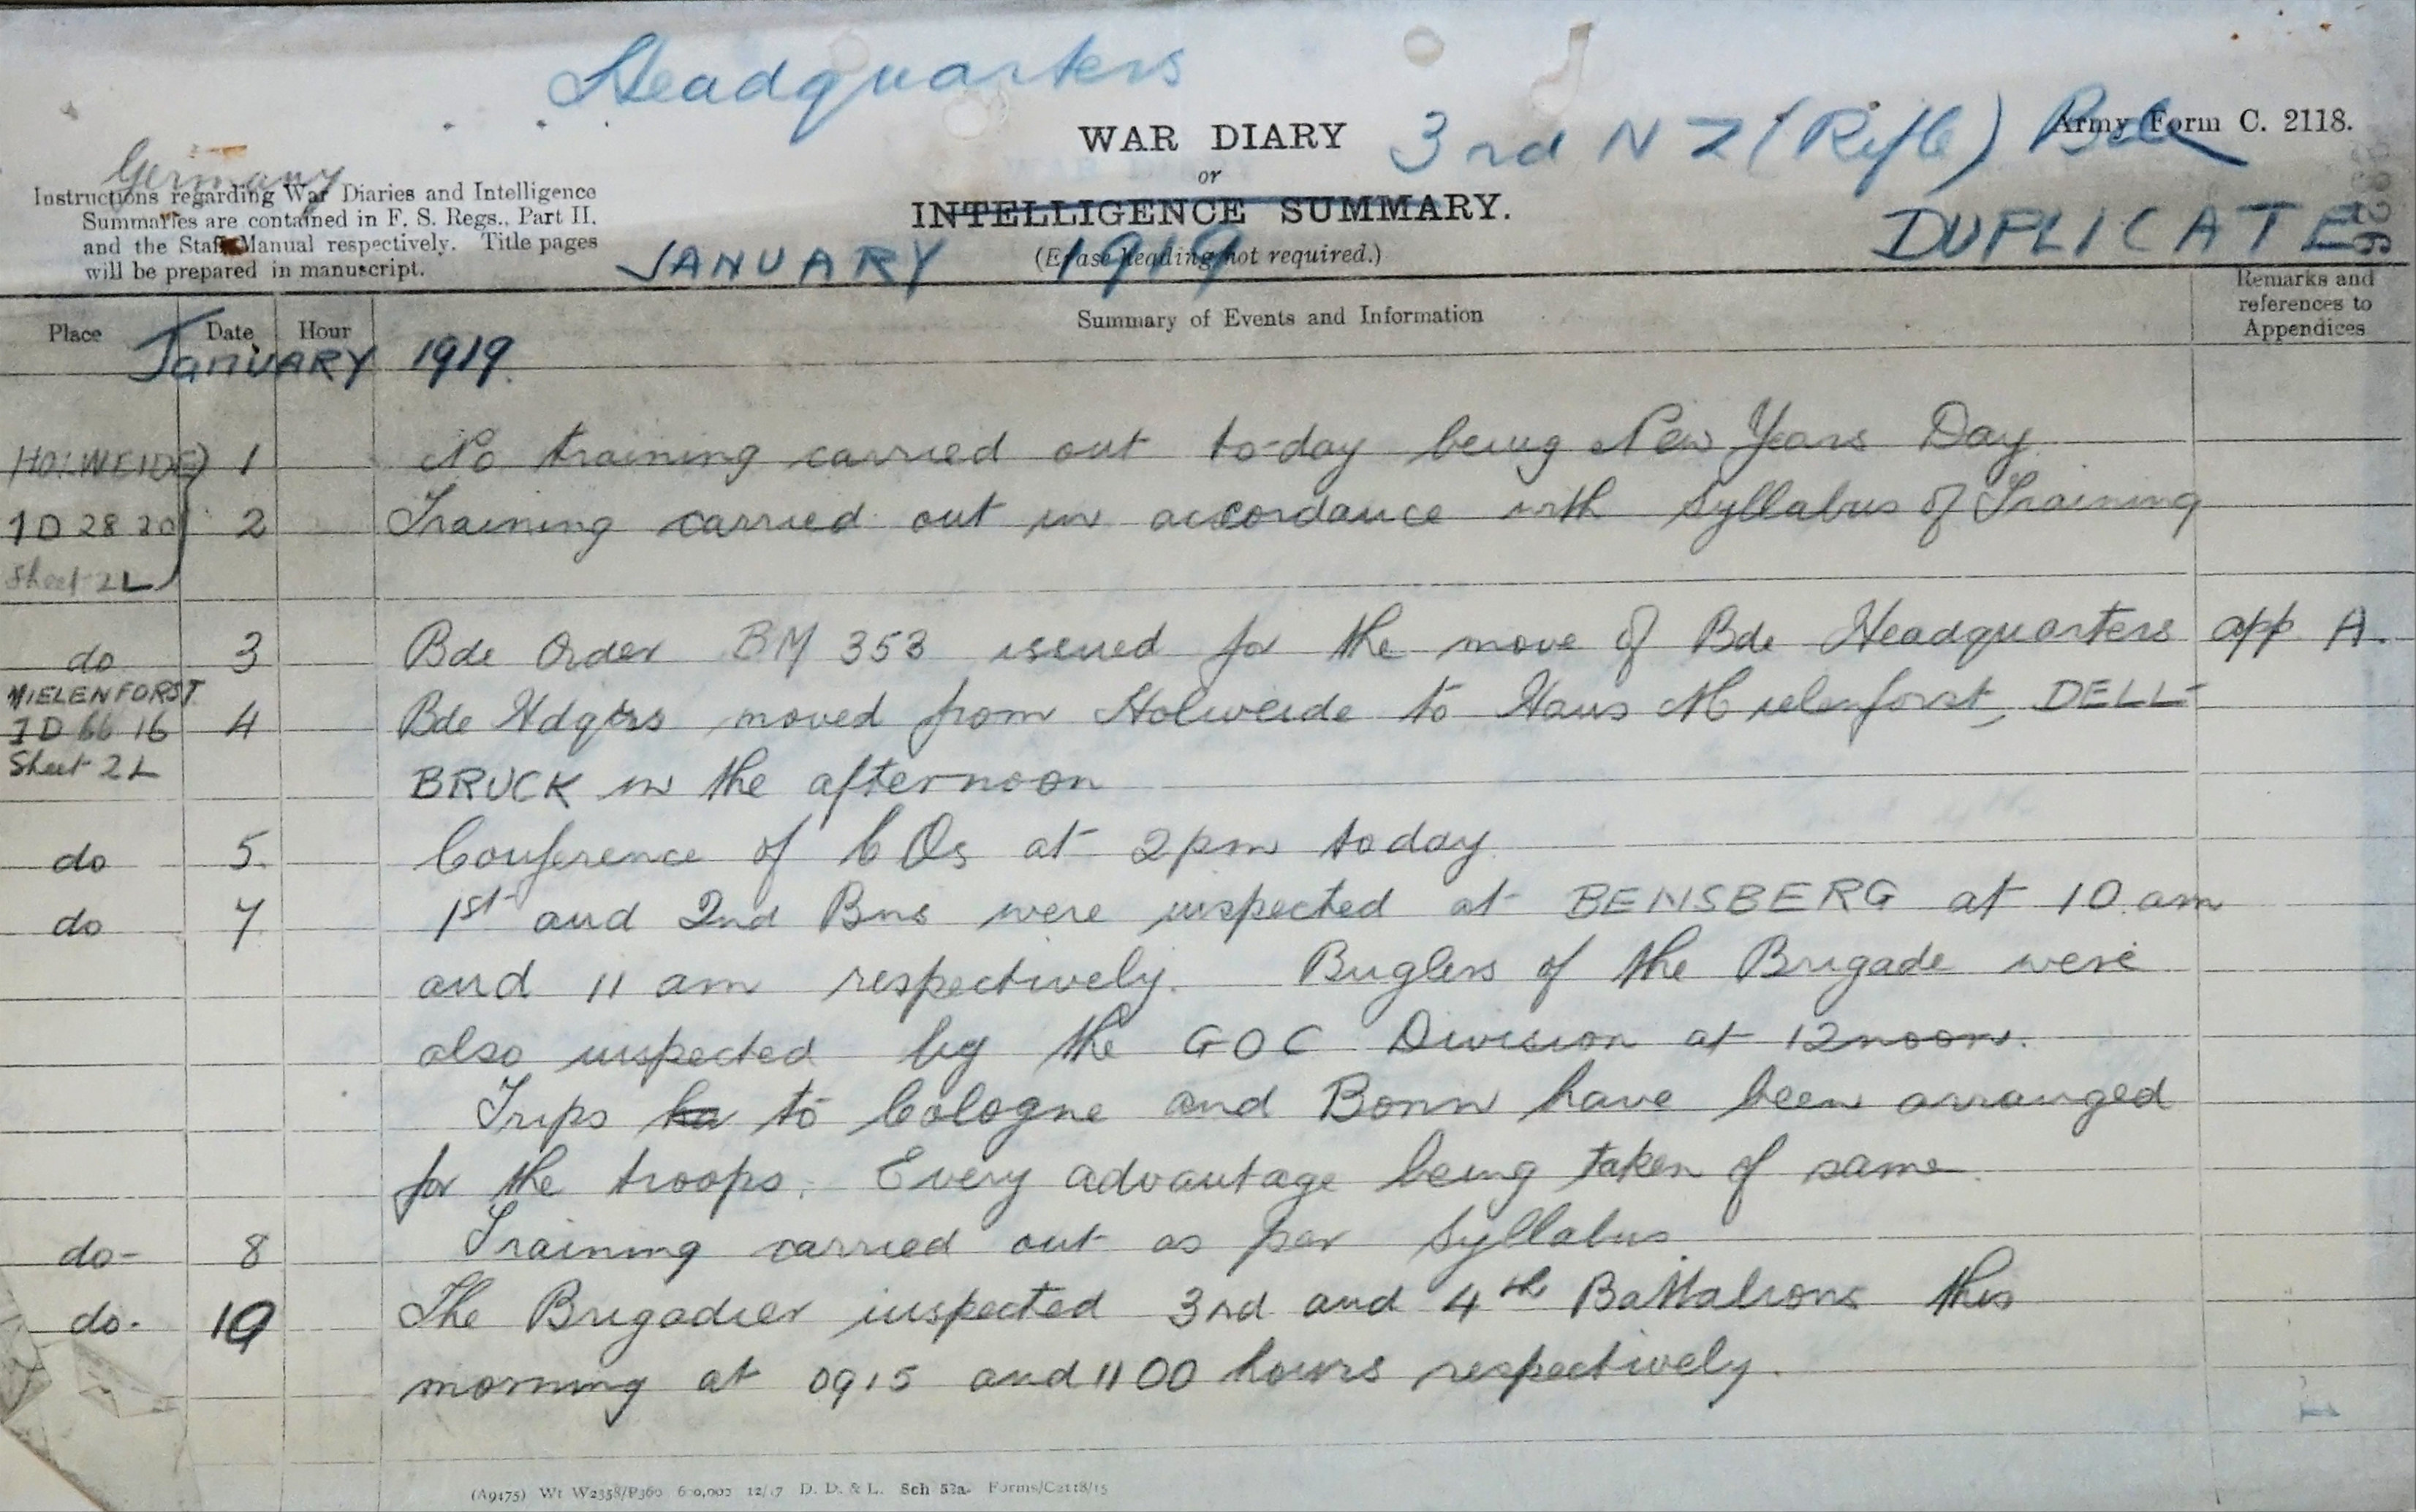 Headquarters
WAR DIARY 3rd NZ (Rifle) Bde Army Form C. 2118.
Germany
or
Instructions regarding War Diaries and Intelligence
Summaries are contained in F. S. Regs., Part II.
and the Staff Manual respectively. Title pages
will be prepared in manuscript.
INTELLIGENCE SUMMARY.
DUPLICATE
JANUARY 1919
(Erase heading not required.)
Place Date Hour Summary of Events and Information Remarks and
references to
Appendices
JANUARY 1919.
HOLWEIDE 1 No training carried out to-day being New Years Day.
1D 28 20 2 Training carried out in accordance with syllabus of Training
Sheet 2L
do 3 Bde Order BM 353 issued for the move of Bde Headquarters app A.
MIELENFORST
1D 66 16 4 Bde Hdqtrs moved from Holweide to Haus Mielenforst, DELL-
Sheet 2L
BRUCK in the afternoon
do 5. Conference of COs at 2pm today.
do 7 1st and 2nd Bns were inspected at BENSBERG at 10.am
and 11 am respectively. Buglers of the Brigade were
also inspected by the GOC Division at 12noon.
Trips to Cologne and Bonn have been arranged
for the troops. Every advantage being taken of same.
do- 8 Training carried out as per syllabus.
do. 10 The Brigadier inspected 3rd and 4th Battalions this
morning at 0915 and 1100 hours respectively.
(A9475) Wt W2358/P360 600,000 12/17 D. D. & L. Sch 52a. Forms/C2118/15